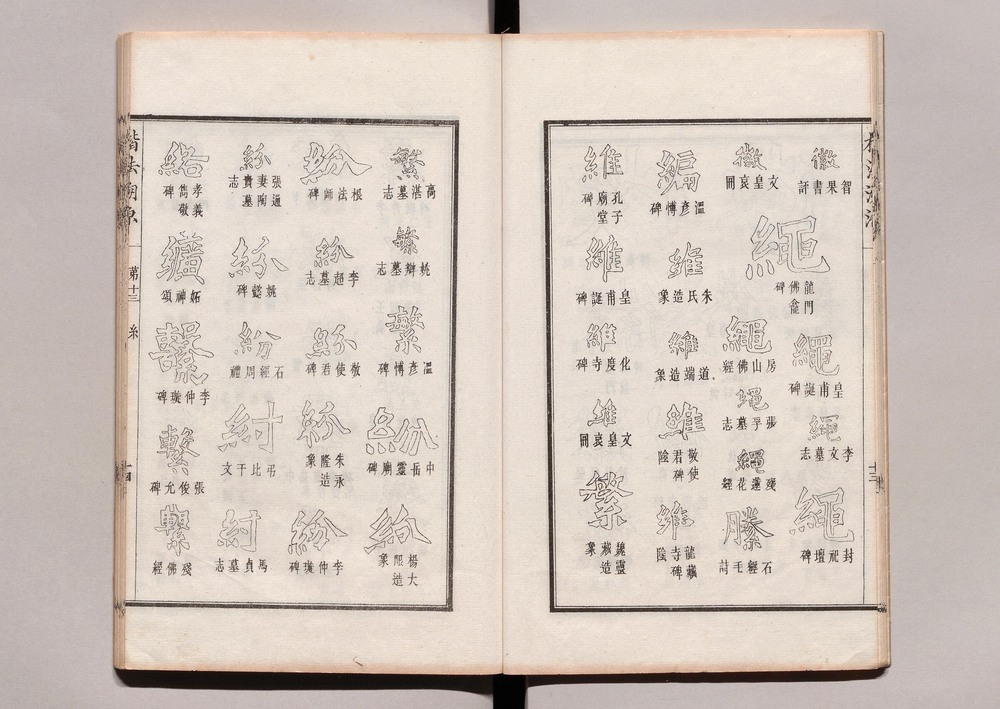 徽
智果書評
繩
龍門佛龕碑
繩
皇甫誕碑
繩
李文墓志
繩
封祀壇碑
徽
文皇哀冊
繩
房山佛經
繩
張孚墓志
繩
殘蓮花經
縢
石經毛詩
編
溫彥博碑
維
朱氏造象
維
道端造象
維
敬使君碑陰
維
龍藏寺碑陰
維
孔子廟堂碑
維
皇甫誕碑
維
化度寺碑
維
文皇哀冊
繁
魏靈藏造象
十三
繁
高湛墓志
繁
姚辯墓志
繁
溫彥博碑
紛
中岳靈廟碑
紛
楊大眼造象
紛
根法師碑
紛
李超墓志
紛
敬使君碑
紛
朱永隆造象
紛
李仲璇碑
紛
張通妻陶貴墓志
紛
姚懿碑
紛
石經周禮
紂
弔比干文
紂
馬貞墓志
絡
孝義雋敬碑
纊
妬神頌
繫
李仲璇碑
繫
張俊允碑
繫
殘佛經
楷法溯源
第十三
糸
十四